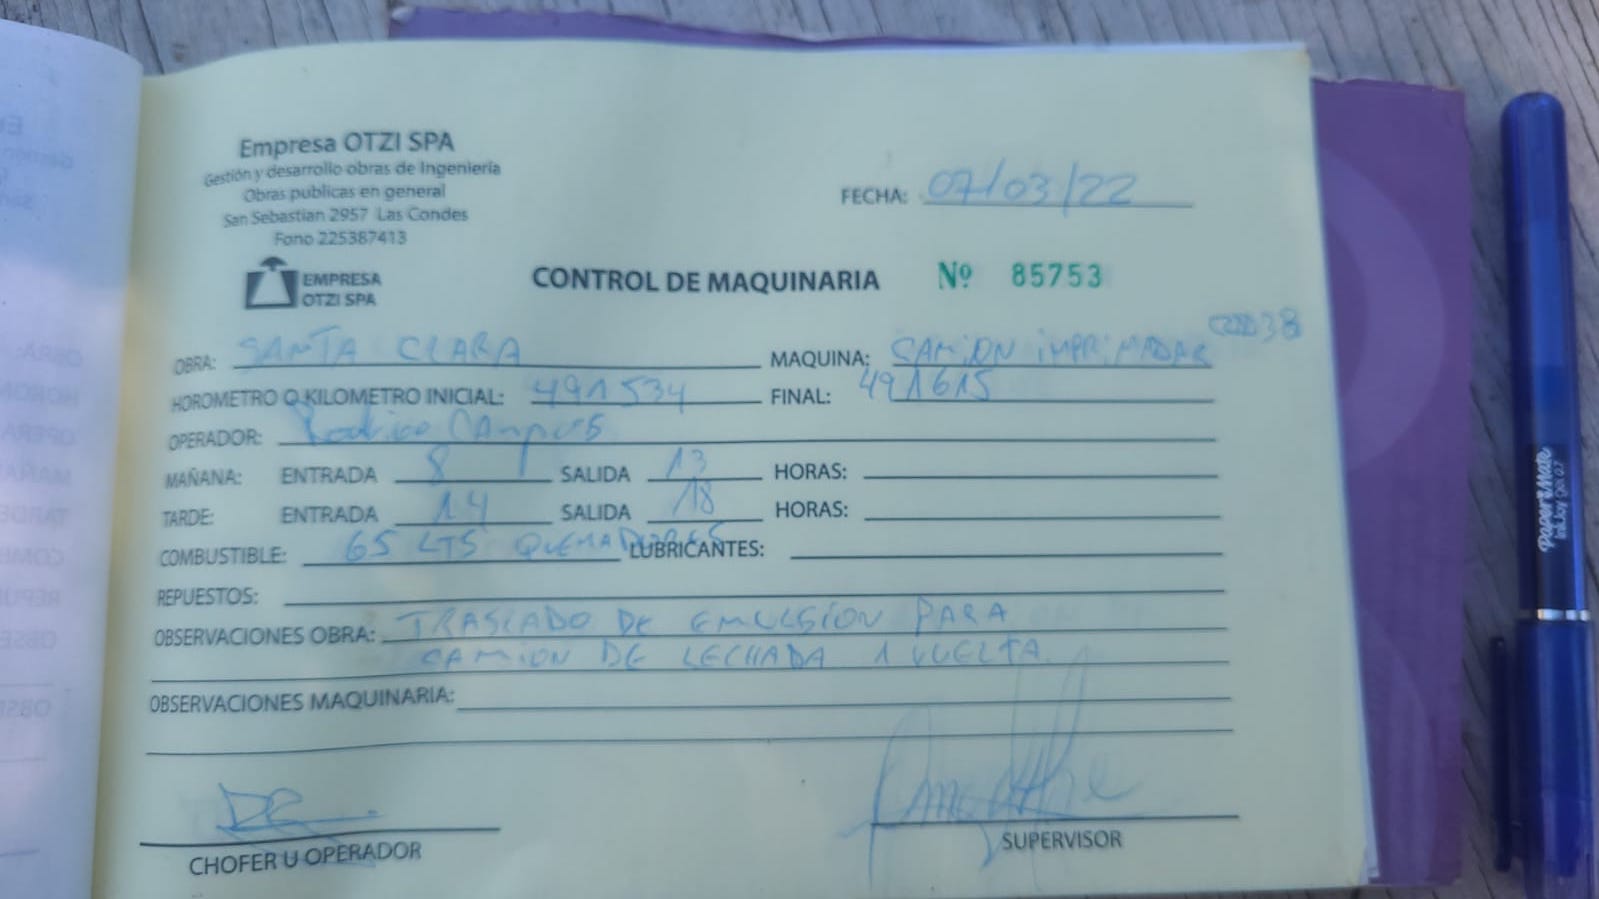 Empresa OTZI SPA
Gestión y desarrollo obras de Ingeniería
Obras publicas en general
San Sebastian 2957 Las Condes
Fono 225387413
EMPRESA
OTZI SPA
FECHA: 07/03/22
CONTROL DE MAQUINARIA Nº 85753
OBRA: SANTA CLARA MAQUINA: CAMION IMPRIMADOR 38
HOROMETRO O KILOMETRO INICIAL: 491534 FINAL: 491615
OPERADOR: Rodrigo Campos
MAÑANA: ENTRADA 8 SALIDA 13 HORAS:
TARDE: ENTRADA 14 SALIDA 18 HORAS:
COMBUSTIBLE: 65 LTS QUEMADORES LUBRICANTES:
REPUESTOS:
OBSERVACIONES OBRA: TRASLADO DE EMULSION PARA
CAMION DE LECHADA 1 VUELTA
OBSERVACIONES MAQUINARIA:
CHOFER U OPERADOR
SUPERVISOR
Paper Mate
InkJoy Gel 0.7